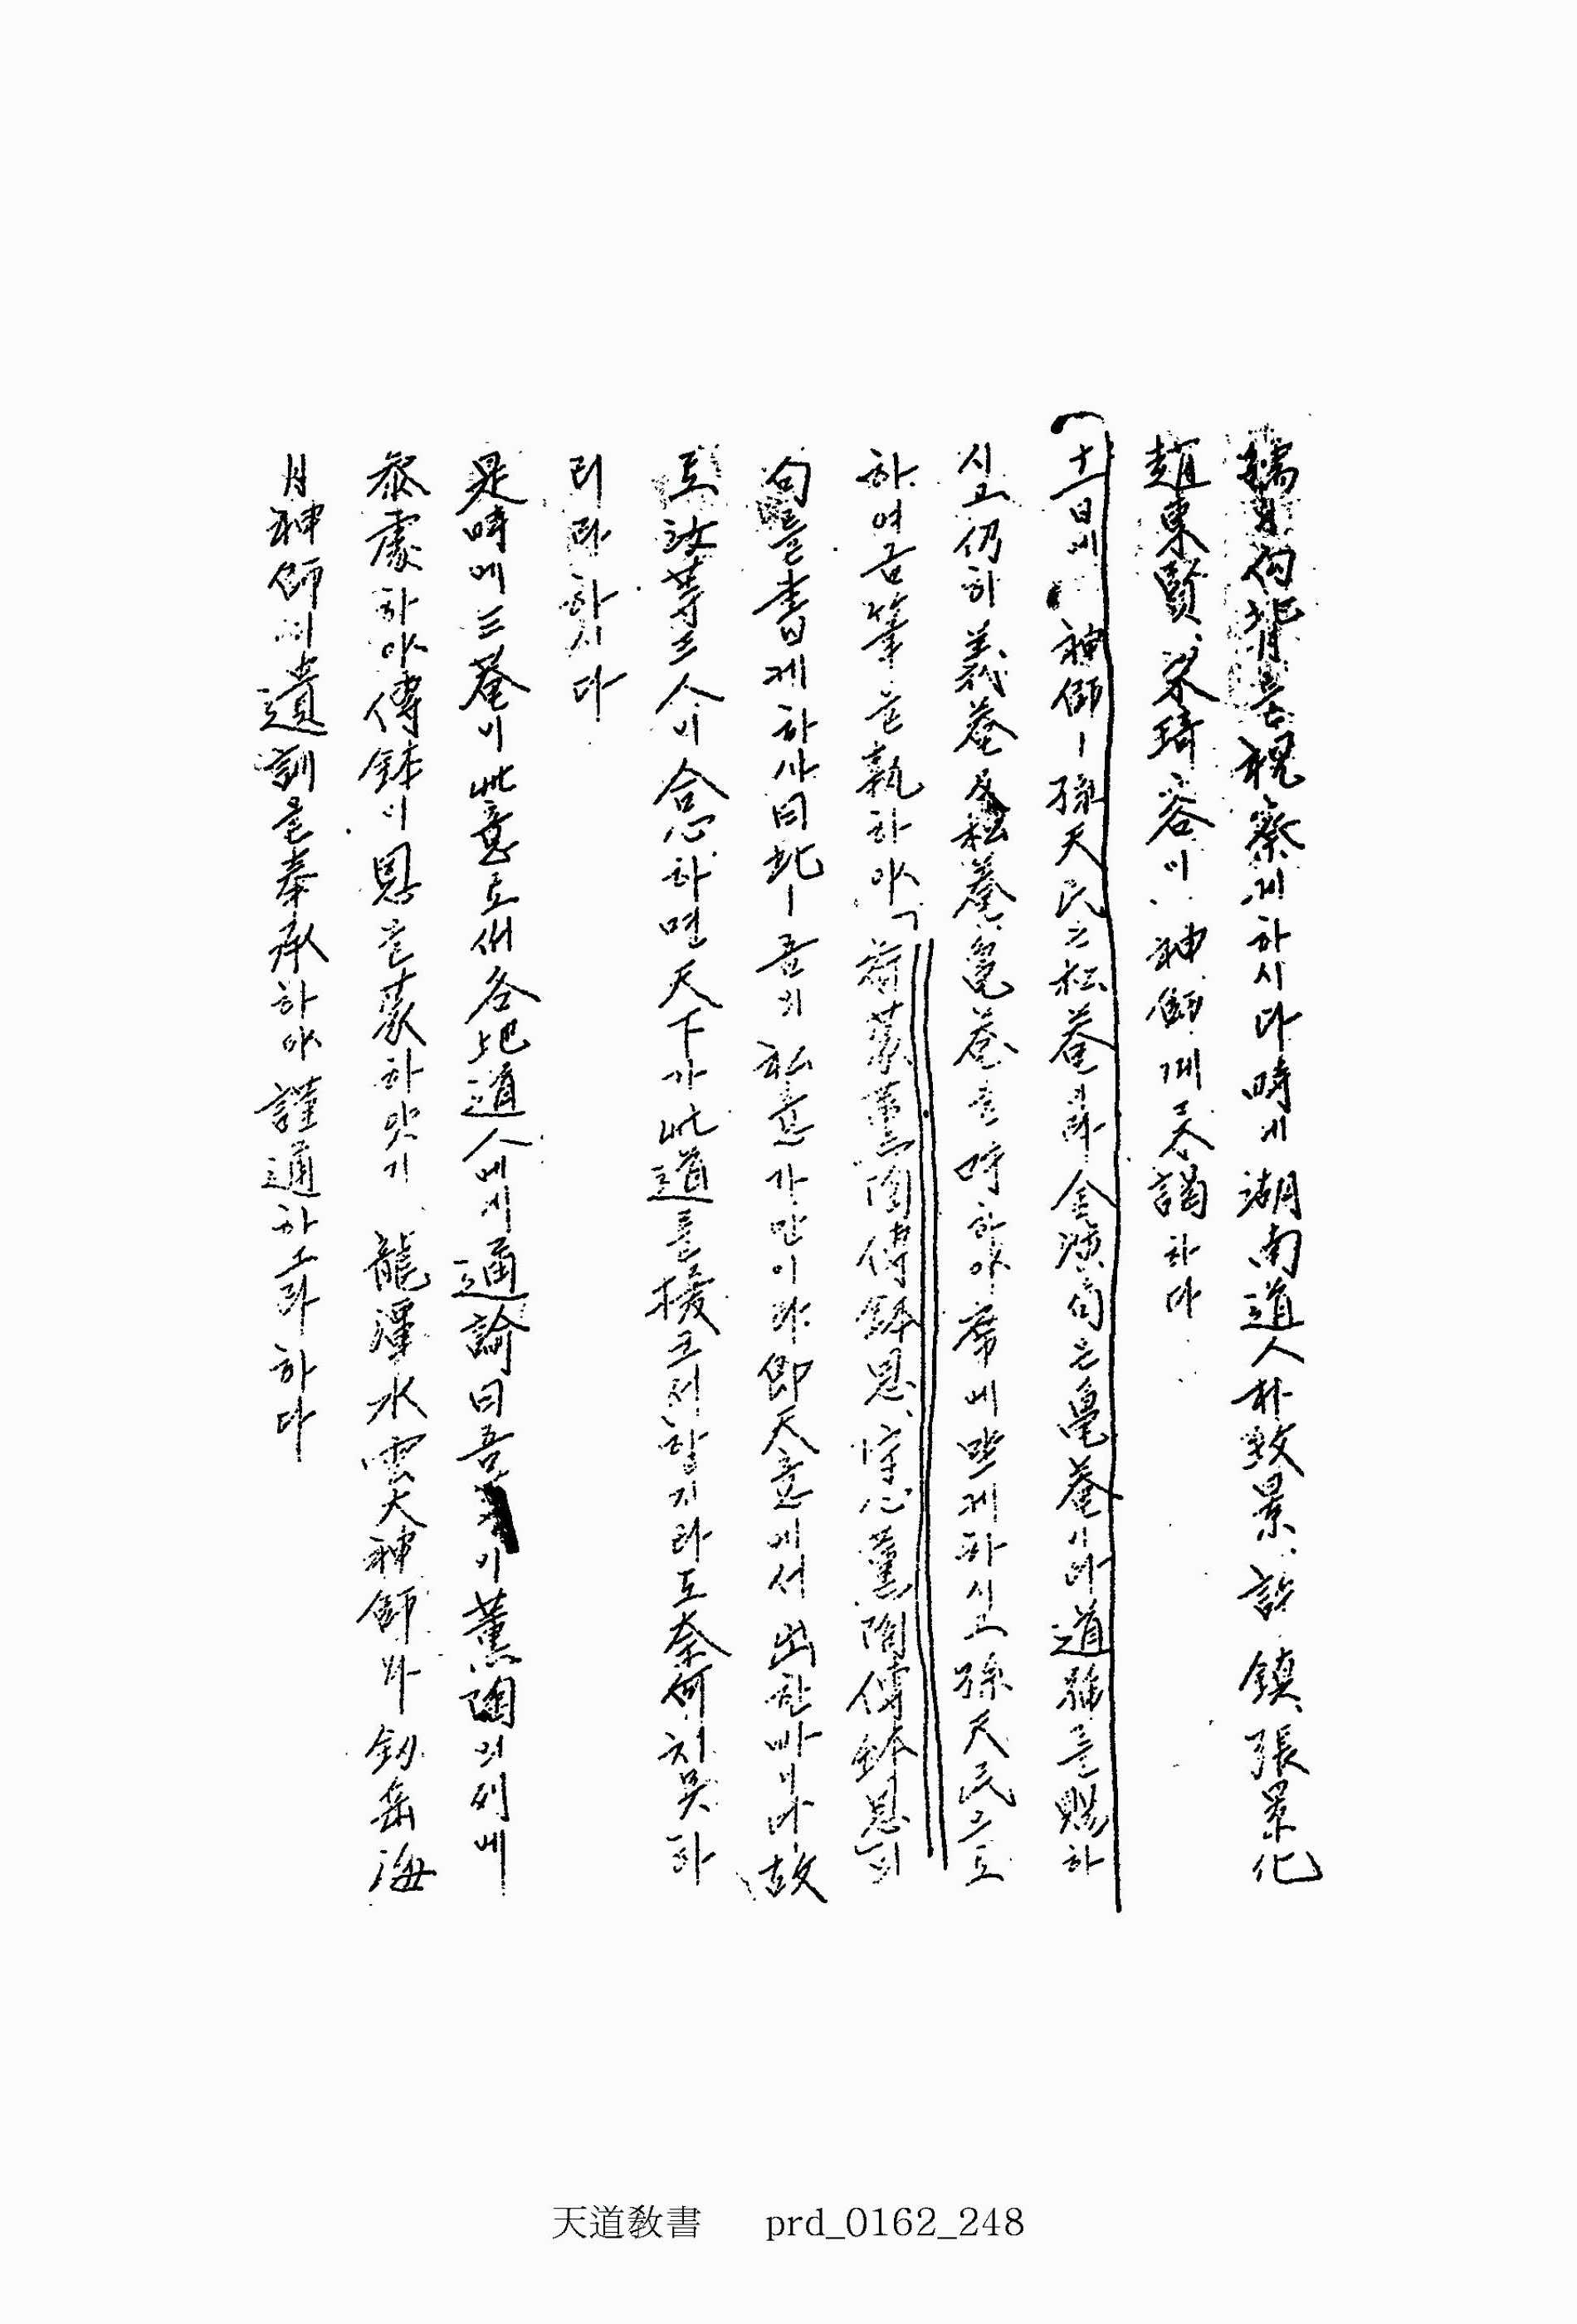 向背를 視察케하시다 時에 湖南道人朴致景、許鎭、張景化
趙東賢、梁琦容이 神師께 來謁하다
十一日에 神師ㅣ孫天民은松菴이라 金演局은龜菴이라道號를賜하
시고仍히義菴及松菴、龜菴을呼하야席에坐케하시고孫天民으로
하여금筆을執하야「荷蒙薰陶傳鉢恩、守心薰陶傳鉢恩」의
句를書케하사曰此ㅣ吾의私意가안이라卽天意에서出한바이라故
로汝等三人이合心하면天下가此道를撓코저할지라도奈何치못하
리라하시다
是時에三菴이此意로써各地道人에게通諭曰吾 이薰陶의列에
叅處하야傳鉢의恩을蒙하얏기 龍潭水雲大神師와劒岳海
月神師의遺訓을奉承하야謹通하노라하다
天道敎書 prd_0162_248